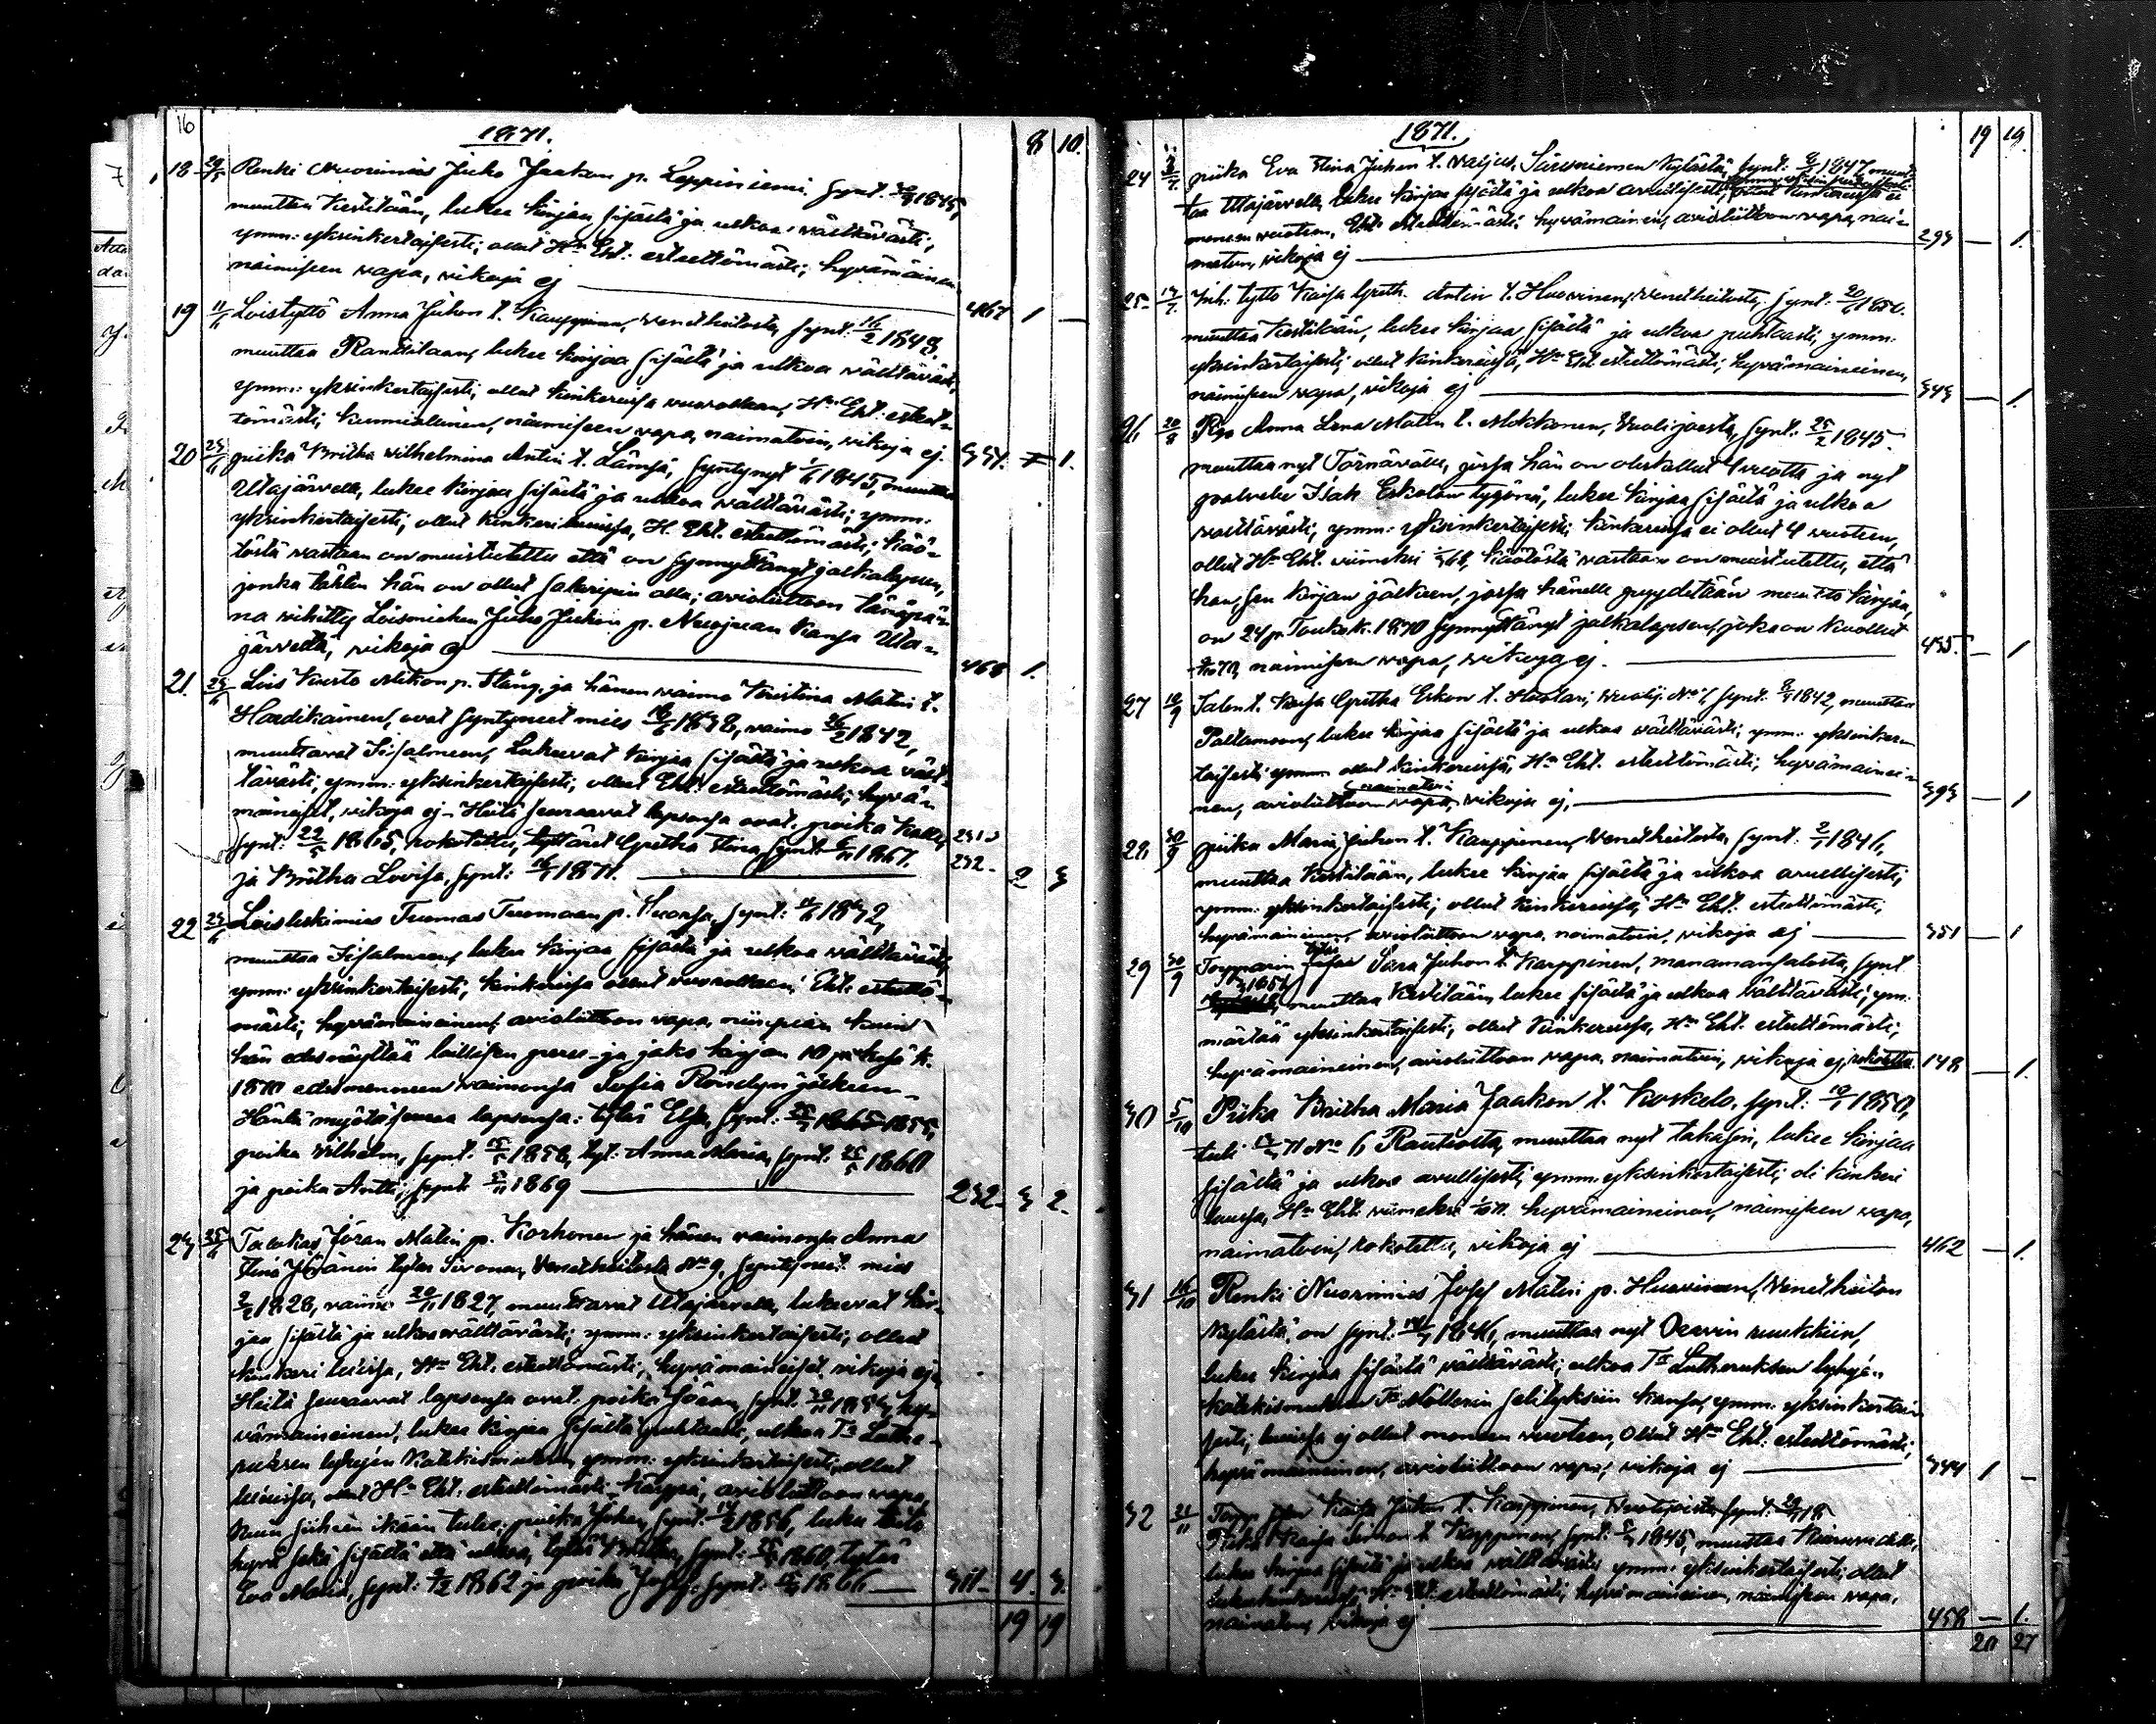 16
1871.
8 10.
18 29/5 Renki Nuorimies Juho Jaakon p. Leppiniemi synt. 1845,
muuttaa Kestilään, lukee kirjaa sisästä ja ulkoa välttävästi,
ymm: yksinkertaisesti; ollut Hn Eht: esteettömästi; hyvämainen
naimiseen vapa, vikoja ej 467 1 —
19 11/6 Loistyttö Anna Juhon t. Kauppinen, Venetheitosta, synt: 16/2 1848.
muuttaa Rantsilaan, lukee kirjaa sisästä ja ulkoa välttäväst,
ymm: yksinkertaisesti, ollut kinkereissa vuorollaan, Hn Eht: esteet-
tömästi; kunniallinen, naimiseen vapa, naimatoin, vikoja ej. 354. 1.
20 25/6 piika Britha Wilhelmina Antin t. Lämsä, syntynyt 1845, muuttaa
Utajärvelle, lukee kirjaa sisästä ja ulkoa välttävästi; ymm:
yksinkertaisesti, ollut kinkeriluissa, H. Eht. esteettömästi; käö-
töstä vastaan on muistutettu että on synnyttänyt jalkalapsen,
jonka tähten hän on ollut salaripin alla; avioliittoon tänäpä-
nä vihitty Loismiehen Juho Juhon p. Nuojuan kansa Uta-
järveltä, vikoja ej 468 1.
21. 25/6 Lois Kusto Mikon p. Stång, ja hänen vaimo Kristina Matin t.
Hardikainen, ovat syntyneet mies 1838, vaimo 1842,
muuttavat Iisalmeen, Lukeevat kirjaa sisästä ja ulkoa vält-
tävästi, ymm: yksinkertaisesti, olleet Eht: esteettömästi; hyvä-
mäiniset, vikoja ej - Heitä seuraavat lapsensa ovat. poika Kalle,
synt: 22/5 1865, rokotettu, tyttäret Gretha Stina, synt. 1867. 231
ja Britha Lovisa, synt: 1871. 232- 2 3
22 25/6 Loisleskimies Tuomas Tuomaan p. Huovja, synt: 1832,
muuttaa Iisalmeen, lukee kirjaa sisästä ja ulkoa välttävästi,
ymm: yksinkertaisesti, kinkerissa ollut vuorollaan; Eht. esteettö-
mästi; hyvämainainen, avioliittoon vapa, niinpian kuin
hän edesnäyttää laillisen perus- ja jako kirjan 10 p. kesä k.
1870 edesmenneen vaimonsa Sofia Rönelyn jälkeen
Häntä myötäseuraa lapsensa: tytär Elsa, synt: 1855,
poika Wilhelm, synt. 1858, tyt. Anna Maria, synt. 25/5 1860
ja poika Antti, synt. 1869 232- 3 2.
23 25/6 Talokas Jöran Matin p. Korhonen ja hänen vaimonsa Anna
Stina Jöranin tytär Sirenen, Venetheitosta No 9, syntyneet mies
1828, vaimo 1827, muuttavat Utajärvelle, lukeevat kir-
jaa sisästä ja ulkoa välttävästi; ymm: yksinkertaisesti, ollut
kinkeri luissa, Hn Eht. esteettömästi, hyvämaineiset, vikoja ej
Heitä seuraavat lapsensa ovat. poika Jöran, synt. 1854, hy-
vämaineinen, lukee kirjaa sisästä puhtaasti, ulkoa Tr Luthe-
ruksen lyhyen Katekismuksen, ymm: yksinkertaisesti, ollut
luissa, ollut Hn Eht. esteettömästi käypä, avioliittoon vapa,
kuin siihen ikään tulee; poika Juho, synt. 1856, lukee
hyvä sekä sisästä että ulkoa, tytär Britha, synt: 1860, tytär
Eva Maria, synt: 1862 ja poika Josef, synt: 1866 311- 4. 3.
19 19
1871.
19 19.
24 piika Eva Stina Juhon t. Valjus, Säräisniemen kylästä, synt. 1847, muut-
taa Utajärvelle, lukee kirjaa sisästä ja ulkoa avullisesti,
moneen vuoteen, Eht. esteettömästi; hyvämainen, avioliittoon vapa, nai-
matoin, vikoja ej 293 — 1.
25 Inh: tyttö Kaisa Greth. Antin t. Huovinen, Venetheitosta, synt: 1850.
muuttaa Kestilään, lukee kirjaa sisästä ja ulkoa puhtaasti, ymm:
yksinkertaisesti, ollut kinkereissä, Hn Eht esteettömästi, hyvämaineinen,
naimiseen vapa, vikoja ej 343 — 1.
26 20/8 Anna Lena Matin t. Mokkonen, Vuolijoesta, synt: 25/2 1845.
muuttaa nyt Törnävälle, jossa hän on oleskellut 4 vuotta ja nyt
palvelee Isak Eskolan tygönä, lukee kirjaa sisästä ja ulkoa
välttävästi, ymm: yksinkertaisesti, kinkereissä ei ollut 4 vuoteen,
ollut Hn Eht. viimeksi 68, käötöstä vastaan on muistutettu, että
hän, sen kirjan jälkeen, jossa hänelle pyydetään muutto kirjaa,
on 24 p. Touko k. 1870 synnyttänyt jalkalapsen, joka on kuollut
70, naimiseen vapa, vikoja ej. 455. — 1
27 10/9 Talont. Kaisa Gretha Eskon t. Huotari, Vuolij. No 1, synt. 1842, muuttaa
Paltamoon, lukee kirjaa sisästä ja ulkoa välttävästi, ymm: yksinker-
taisesti ymm. ollut kinkereissä, Hn Eht. esteettömästi, hyvämainei-
naimatoin
nen, avioliittoon vapa, vikoja ej, 393 — 1
28, 30/9 piika Maria Juhon t. Kauppinen, Venetheitosta, synt: 1846,
muuttaa Kestilään, lukee kirjaa sisästä ja ulkoa avullisesti,
ymm: yksinkertaisesti; ollut kinkereissä, Hn Eht. esteettömästi,
hyvämaineinen, avioliittoon vapa, naimatoin, vikoja ej 351 — 1
29 30/9 Torpparin tytär Sara Juhon t. Karppinen, Manamansalosta, synt
muuttaa Kestilään, lukee sisästä ja ulkoa välttävästi, ym-
märtää yksinkertaisesti, ollut kinkereissä, Hn Eht. esteettömästi;
hyvämaineinen, avioliittoon vapa, naimatoin, vikoja ej, rokotettu. 148 — 1.
30 5/10 Piika Britha Maria Jaakon t. Koskelo, synt: 1850,
tuli 71 No 6, Rautiosta, muuttaa nyt takasin, lukee kirjaa
sisästä ja ulkoa avullisesti, ymm. yksinkertaisesti, oli kinkeri
luussa, Hn Eht. viimeksi 71. hyvämaineinen, naimiseen vapa,
naimatoin, rokotettu, vikoja ej 462 — 1.
31 16/10 Renki Nuorimies Josef Matin p. Huovinen, Venetheiton
kylästä, on synt: 1846, muuttaa nyt Oravin ruukkiin,
lukee kirjaa sisästä välttävästi, ulkoa Tr Lutheruksen lyhyen
katekismuksen Tr Möllerin selityksiin kansa, ymm: yksinkertai-
sesti; luissa ej ollut moneen vuoteen, Ollut Hn Eht: esteettömästi;
hyvämaineinen, avioliittoon vapa, vikoja ej 344 1 —
32 21/11 Kaisa Juhon t. Karppinen, Vuolijoesta, synt.
Piika Kaisa Simon t. Karppinen, synt: 1845, muuttaa
lukee kirjaa sisästä ja ulkoa välttävästi ymm: yksinkertaisesti, ollut
lukukinkereissä, Hn Eht: esteettömästi, hyvämaineinen, naimiseen vapa,
naimatoin, vikoja ej 458 — 1.
20 27